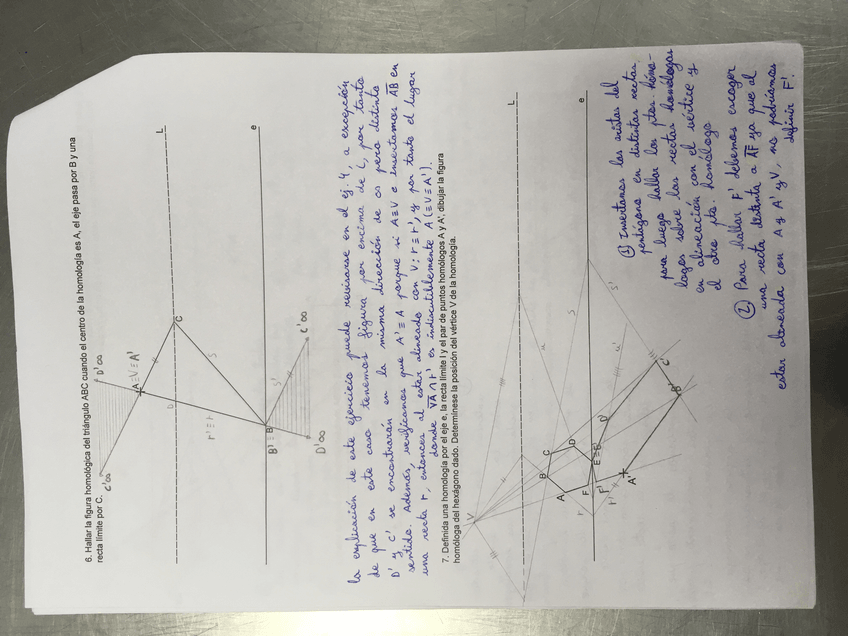 6. Hallar la figura homológica del triángulo ABC cuando el centro de la homología es A, el eje pasa por B y una
recta límite por C.
C'∞
D'∞
A≡V≡A'
D
C
L
r'≡r
s
s'
B'≡B
e
D'∞
C'∞
La explicación de este ejercicio puede revisarse en el ej. 4, a excepción
de que en este caso tenemos figura por encima de L, por tanto
D' y C' se encontrarán en la misma dirección de ∞ pero distinto
sentido. Además, verificamos que A'≡A porque si A≡V e insertamos AB en
una recta r, entonces al estar alineado con V: r≡r', y por tanto el lugar
donde VA ∩ r' es indiscutiblemente A (≡V≡A').
7. Definida una homología por el eje e, la recta límite l y el par de puntos homólogos A y A', dibujar la figura
homóloga del hexágono dado. Determínese la posición del vértice V de la homología.
V
L
A
B
C
D
F
E≡E'
e
u
s
r
F'
D'
u'
s'
r'
A'
B'
C'
① Insertamos las aristas del
pentágono en distintas rectas
para luego hallar los ptos. homó-
logos sobre las rectas homólogas
en alineación con el vértice y
el otro pto. homólogo
② Para hallar F' debemos escoger
una recta distinta a AF ya que al
estar alineada con A y A' y V, no podríamos
definir F'.